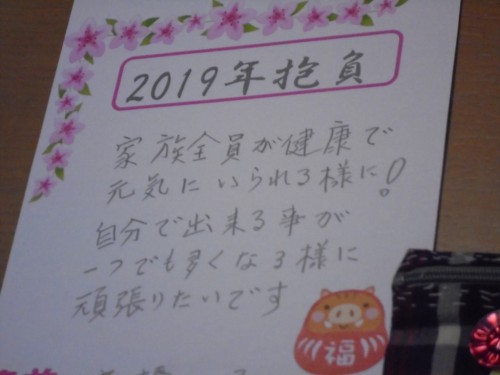 2019年抱負
家族全員が健康で
元気にいられる様に!
自分で出来る事が
一つでも多くなる様に
頑張りたいです
福